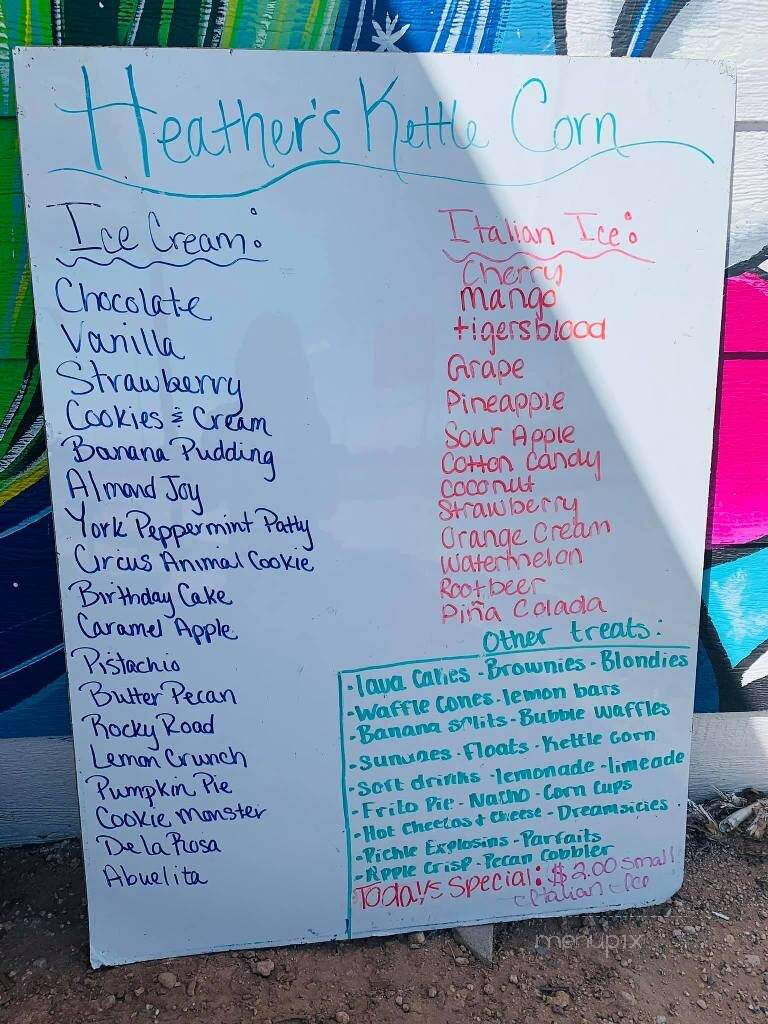 Heather's Kettle Corn
Ice Cream:
Chocolate
Vanilla
Strawberry
Cookies & Cream
Banana Pudding
Almond Joy
York Peppermint Patty
Circus Animal Cookie
Birthday Cake
Caramel Apple
Pistachio
Butter Pecan
Rocky Road
Lemon Crunch
Pumpkin Pie
Cookie Monster
De La Rosa
Abuelita
Italian Ice:
Cherry
mango
tigersblood
Grape
Pineapple
Sour Apple
Cotton Candy
Coconut
Strawberry
Orange Cream
Watermelon
Rootbeer
Piña Colada
Other treats:
·lava Cakes -Brownies -Blondies
-Waffle Cones -lemon bars
-Banana splits -Bubble Waffles
-Sundaes -Floats -Kettle Corn
-Soft drinks -lemonade -limeade
-Frito Pie -Nacho -Corn Cups
-Hot Cheetos + Cheese -Dreamsicles
-Pickle Explosins -Parfaits
-Apple Crisp -Pecan Cobbler
Today's Special: $2.00 Small
Italian Ice
menupix